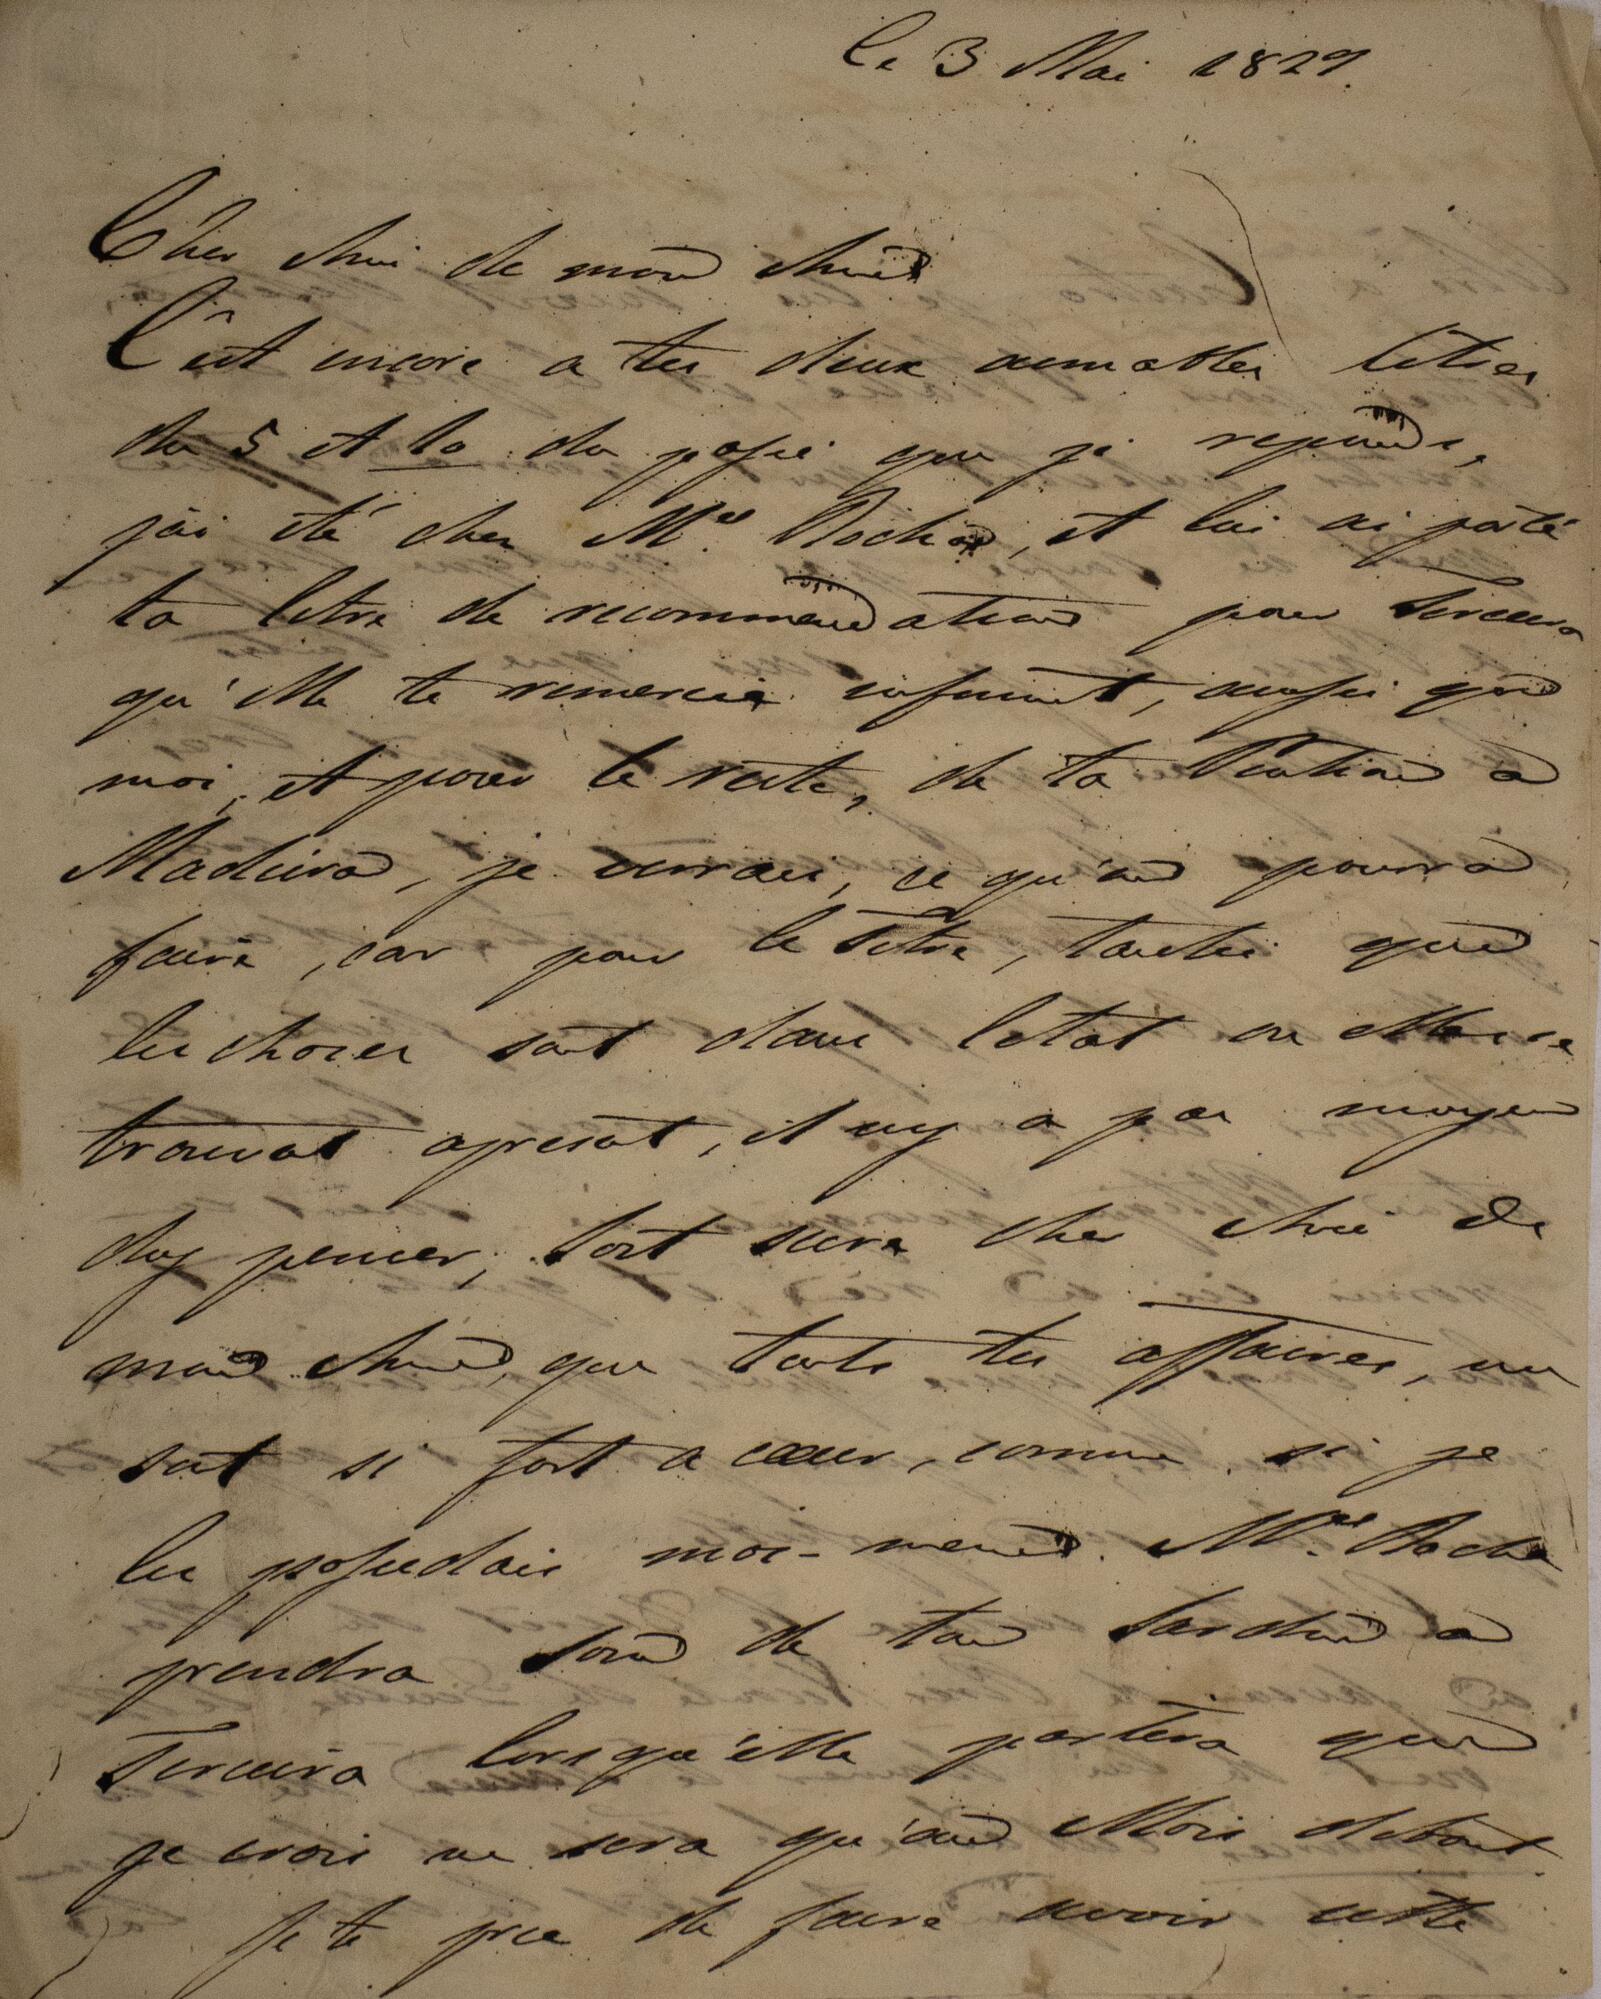 le 3 Mai 1829.
Cher Ami de mon Ame
C'est encore a tes deux aimables letres
du 5 et 10 du passé que je reponds,
j'ai été chez Mme Rocha, et lui ai porté
ta letre de recommendation pour Terceira
qu'elle te remercie infinint, aussi que
moi, et pour le reste, de ta à
Madeira, je verrai, ce qu'on pourra
faire, car pour le Titre, tantis que
les choses sont dans l'etat ou elles se
trouvat apresat, il n'y a pas moyen
d'y penser; soit sure cher Ami de
mon Ame, que touts tes affaires, me
sont si fort a coeur, comme si je
les possedais moi-meme. Mme Rocha
prendra soin de ton Jardin a
Terceira lorsqu'elle partira que
je crois ne sera qu'au Mois d'Aout.
Je te prie de faire avoir cette